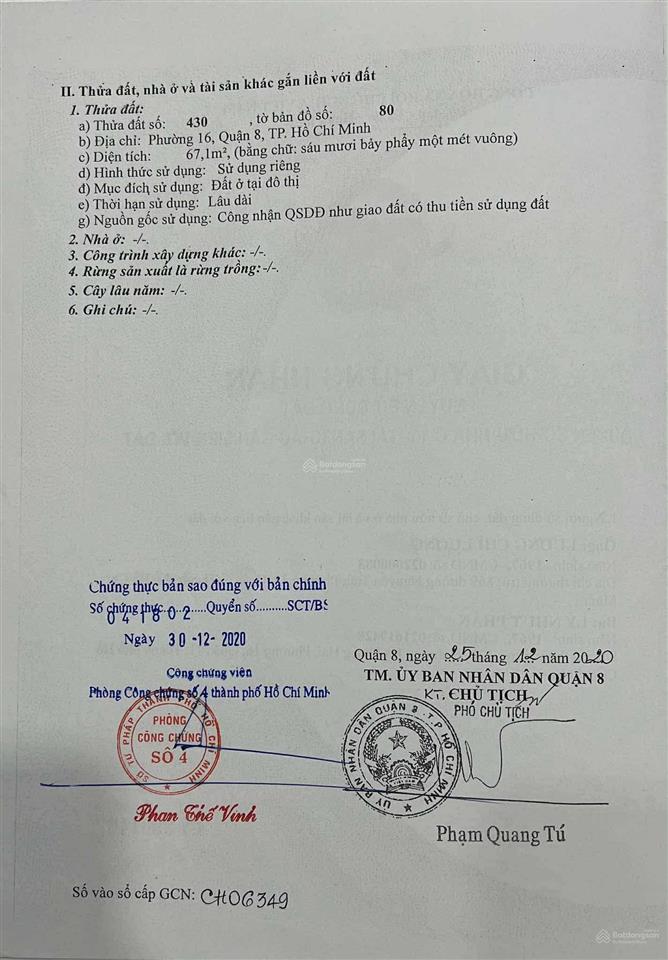 II. Thửa đất, nhà ở và tài sản khác gắn liền với đất
1. Thửa đất:
a) Thửa đất số: 430 , tờ bản đồ số: 80
b) Địa chỉ: Phường 16, Quận 8, TP. Hồ Chí Minh
c) Diện tích: 67,1m², (bằng chữ: sáu mươi bảy phẩy một mét vuông)
d) Hình thức sử dụng: Sử dụng riêng
đ) Mục đích sử dụng: Đất ở tại đô thị
e) Thời hạn sử dụng: Lâu dài
g) Nguồn gốc sử dụng: Công nhận QSDĐ như giao đất có thu tiền sử dụng đất
2. Nhà ở: -/-.
3. Công trình xây dựng khác: -/-.
4. Rừng sản xuất là rừng trồng: -/-.
5. Cây lâu năm: -/-.
6. Ghi chú: -/-.
Batdongsan
Chứng thực bản sao đúng với bản chính
Số chứng thực 041802 Quyển số..........SCT/BS
Ngày 30-12-2020
Công chứng viên
Phòng Công chứng số 4 thành phố Hồ Chí Minh
SỞ TƯ PHÁP THÀNH PHỐ HỒ CHÍ MINH
PHÒNG
CÔNG CHỨNG
SỐ 4
Phan Thế Vinh
Quận 8, ngày 25 tháng 12 năm 2020
TM. ỦY BAN NHÂN DÂN QUẬN 8
KT. CHỦ TỊCH
PHÓ CHỦ TỊCH
ỦY BAN NHÂN DÂN QUẬN 8 - T.P HỒ CHÍ MINH
Phạm Quang Tú
Số vào sổ cấp GCN: CH06349
Batdongsan